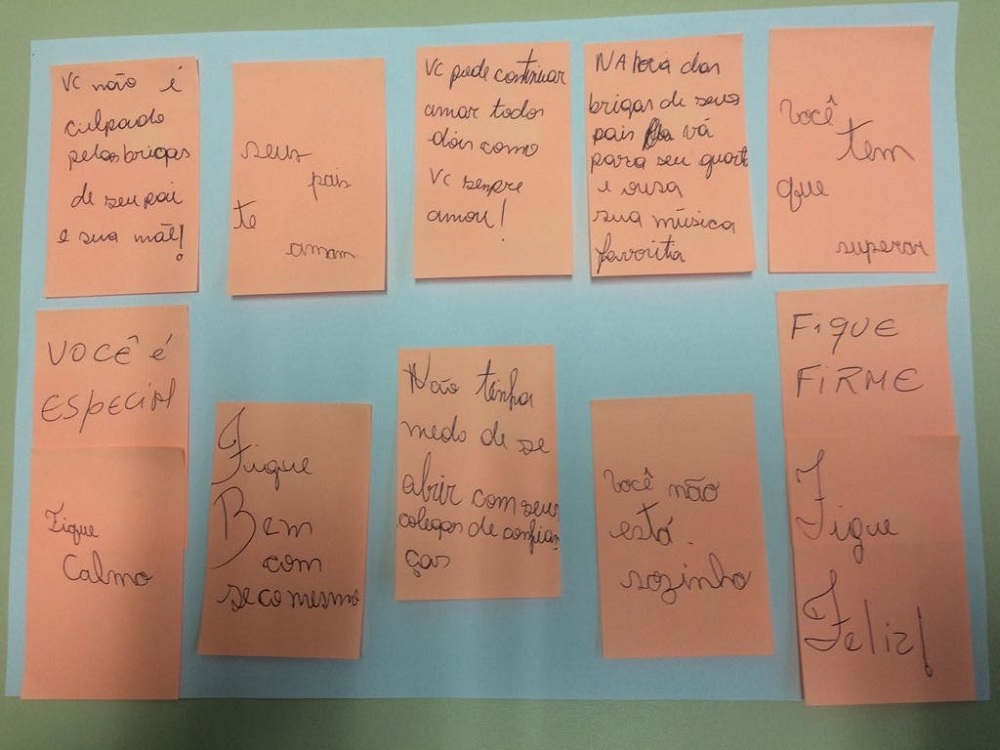 vc não é
culpado
pelas brigas
de seu pai
e sua mãe!
seus
pais
te
amam
Vc pode continuar
amar todos
dois como
Vc sempre
amou!
NA hora das
brigas de seus
pais vá
para seu quarto
e ousa
sua música
favorita
você
tem
que
superar
VOCÊ é
ESPECIAL
Fique
Calmo
Fique
Bem
com
se co mesmo
Não tenha
medo de se
abrir com seus
colegas de confian
ças
você não
está
sozinho
FiQUE
FiRME
Fique
Feliz!